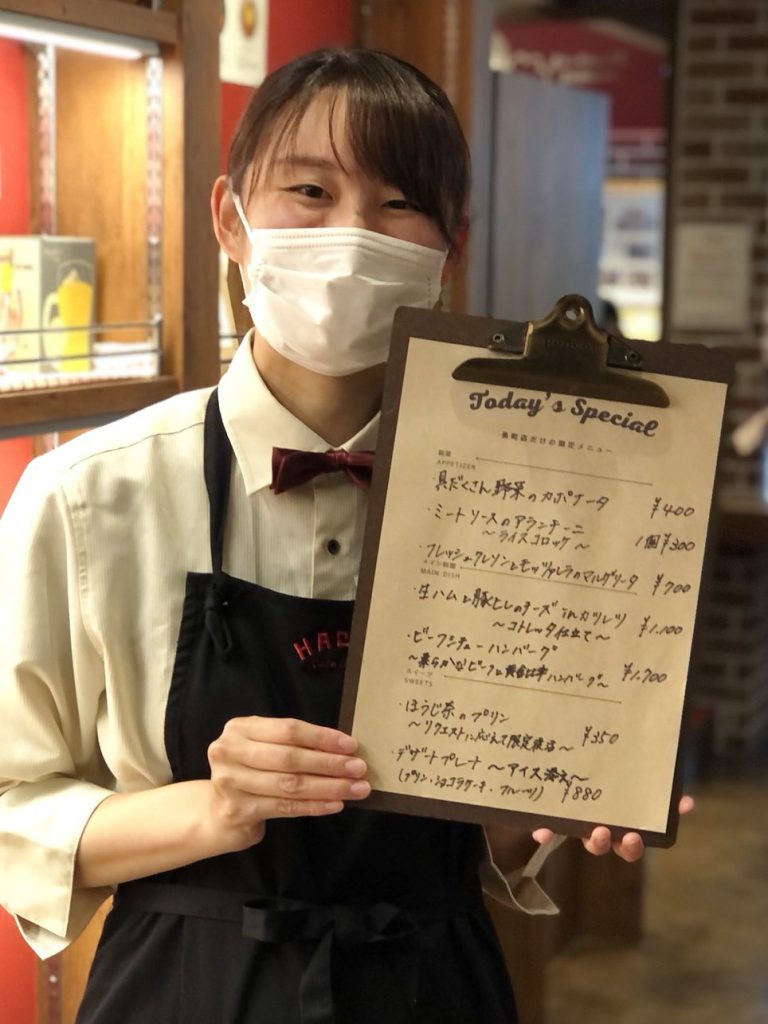 Today's Special
前菜
APPETIZER
・具だくさん野菜のカポナータ ¥400
・ミートソースのアランチーニ
～ライスコロッケ～ 1個¥300
・フレッシュクレソンとモッツァレラのマルゲリータ ¥700
メイン料理
MAIN DISH
・生ハムと豚ヒレのチーズinカツレツ
～コトレッタ仕立て～ ¥1,100
・ビーフシチューハンバーグ
～柔らかなビーフと黄金比率ハンバーグ～ ¥1,700
スイーツ
SWEETS
・ほうじ茶のプリン
～リクエストに応えて限定復活～ ¥350
・デザートプレート ～アイス添え～
(プリン・ショコラケーキ・フルーツ) ¥880